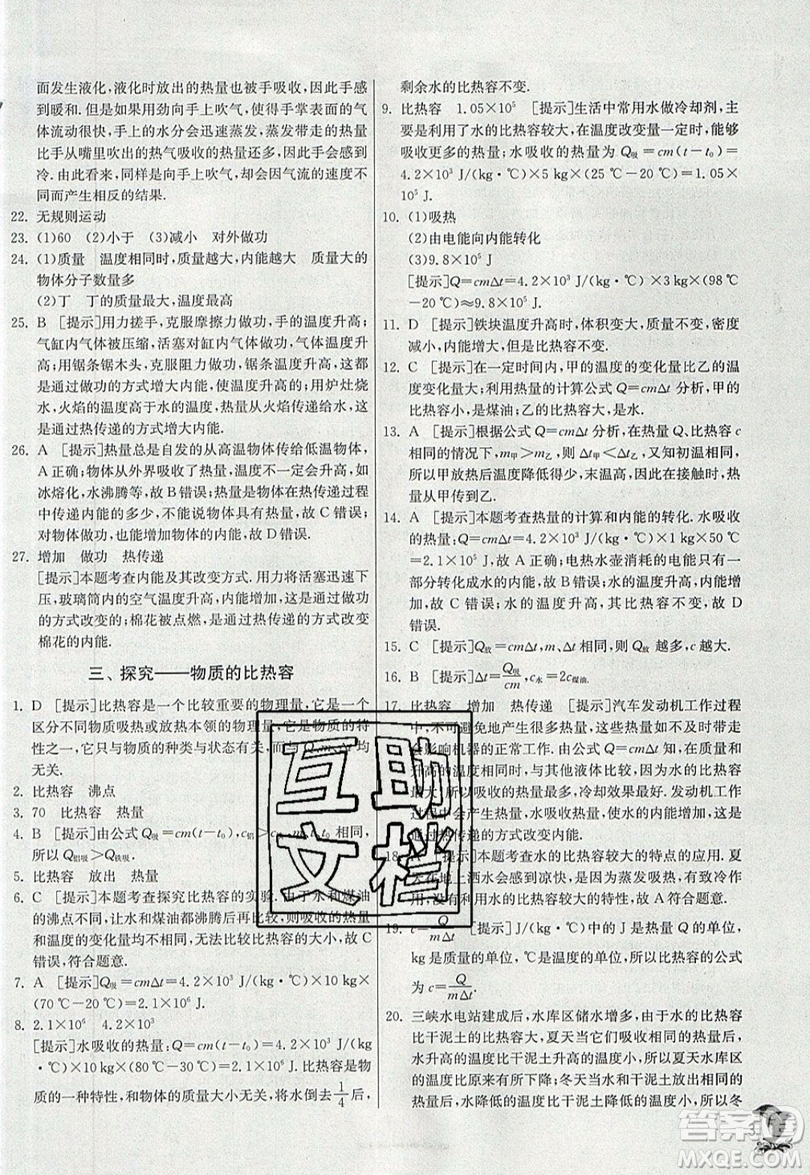 而发生液化,液化时放出的热量被手吸收,因此手感
到暖和.但用劲向手上吹气,使得手掌表面的空气的气
体流动很快,手上的水分会迅速蒸发,蒸发带走的热量
比手从嘴里吹出的热气吸收的热量还多,因此手会感到
冷.由此看来,同样是向手上吹气,因气流的速度不
同而产生相反的结果.
22. 无规则运动
23. (1)60 (2)小于 (3)减小 对外做功
24. (1)质量 温度相同时,质量越大,内能越大 质量大的
物体分子数量多
(2)丁 丁的质量最大,温度最高
25. B [提示]用力搓手,克服摩擦力做功,手的温度升高;
气缸内气体被压缩,活塞对气体做功,气体温度升高;
用锯条锯木头,克服摩擦力做功,锯条温度升高;这都
是通过做功的方式增大内能的,温度升高的;用炉灶烧
水,火焰的温度高于水的温度,火焰将热量传递给水,
这是通过热传递的方式增大内能.
26. A [提示]热量总是自发的从高温物体传给低温物体,
A正确;物体从外界吸收了热量,但温度不一定升高,如
冰熔化,水沸腾等,故B错误;热量是物体在热传递过程
中传递内能的多少,不能说物体具有热量,故C错误;
对物体做功,物体也可能向外放热,故D错误.
27. 增加 做功 热传递
[提示]本题考查内能及其改变方式.用力将活塞迅速下
压,玻璃筒内的空气温度升高,内能增加,这是通过做功
的方式改变的;棉花被点燃,是通过热传递的方式增加
棉花的内能.
三、探究——物质的比热容
1. D [提示]比热容是一个比较重要的物理量,它是一个
区分不同物质吸热或放热本领的物理量,是物质的特
性之一,它只与物质的种类与状态有关,而与Q、m、Δt均
无关.
2. 比热容 沸点
3. 70 比热容 热量
4. B [提示]由公式Q吸=cm(t-t₀),c铝>c铁,m、t、t₀相同,
所以Q铝吸>Q铁吸.
5. 比热容 放出 热量
6. C [提示]本题考查探究比热容的实验.由于水和煤油
的沸点不同,让水和煤油都沸腾后再比较,则吸收的热量
和温度的变化量均不相同,无法比较比热容的大小,故C
错误,符合题意.
7. A [提示]Q吸=cmΔt=4.2×10³ J/(kg·℃)×10 kg×
(70 ℃-20 ℃)=2.1×10⁶ J.
8. 2.1×10⁶ 4.2×10³
[提示]水吸收的热量:Q=cmΔt=4.2×10³ J/(kg·℃)×
10 kg×(70 ℃-20 ℃)=2.1×10⁶ J.比热容是物
质的一种特性,和物体的质量大小无关,将水倒去1/4,
剩余水的比热容不变.
9. 比热容 1.05×10⁵ [提示]生活中常用水做冷却剂,主
要是利用了水的比热容较大,在温度改变量一定时,能够
吸收更多的热量;水吸收的热量为Q吸=cm(t-t₀)=
4.2×10³ J/(kg·℃)×5 kg×(25 ℃-20 ℃)=
1.05×10⁵ J.
10. (1)吸热
(2)由电能向内能转化
(3)9.8×10⁵ J
[提示]Q=cmΔt=4.2×10³ J/(kg·℃)×3 kg×(98 ℃
-20 ℃)≈9.8×10⁵ J.
11. D [提示]铁块温度升高时,体积变大,质量不变,密度
减小,内能增大,但比热容不变.
12. C [提示]在一定时间内,甲的温度的变化量比乙的温
度变化量大;利用热量的计算公式Q分析,甲的
比热容小,是煤油;乙的比热容大,是水.
13. A [提示]根据公式Q=cmΔt分析,在热量Q、比热容c
相同的情况下,m甲>m乙,则Δt甲<Δt乙,又知初温相同,
所以甲放热后温度降低得少,末温高,因此在接触时,热量
传甲到乙.
14. A [提示]本题考查热量的计算和内能的转化.水吸
收的热量Q=cmΔt=4.2×10³ J/(kg·℃)×1 kg×50 ℃
=2.1×10⁵ J;故A正确;电热水壶消耗的电能只有一
部分转化成水的内能,故B错误;水的温度升高,内能增
加,故C错误;水的温度升高,其比热容不变,故D
错误.
15. C [提示]Q放=cmΔt,m、Δt相同,所以Q放越多,c越大.
16. B [提示]Δt=Q吸/cm,c水=2c煤油.
17. 比热容 增加 热传递 [提示]汽车发动机工作过程
中,不可避免地产生很多热量,这些热量如不及时排出将
会影响机器的正常工作.由公式Q=cmΔt知,在质量和
升高的温度相同时,水与其他液体相比,水的比热容较
大,所以吸收的热量最多,冷却效果最好.发动机工作过
程中会产生热量,水吸收热量,使水的内能增加,这是
通过热传递的方式改变内能.
18. A [提示]本题考查水的比热容大的特点的应用.夏
天在地上洒水会感到凉快,是因为蒸发吸热,并不是利
用,水的比热容大的特性,故A符合题意.
19. c=Q/mΔt [提示]J/(kg·℃)中,J是热量Q的单位,
kg是质量的单位,℃是温度的单位,所以比热容的公式
为c=Q/mΔt.
20. 三峡水电站建成后,水库区储水增多,由于水的比热容
比干泥土的比热容大,夏天当它们吸收同样的热量后,
水升高的温度比干泥土升高的温度低,所以夏天水库区
的温度比原来会有所下降;冬天当水和干泥土放出同样
的热量后,水降低的温度比干泥土降低的温度少,所以冬
互助
文档
答案圈
MXQE.COM